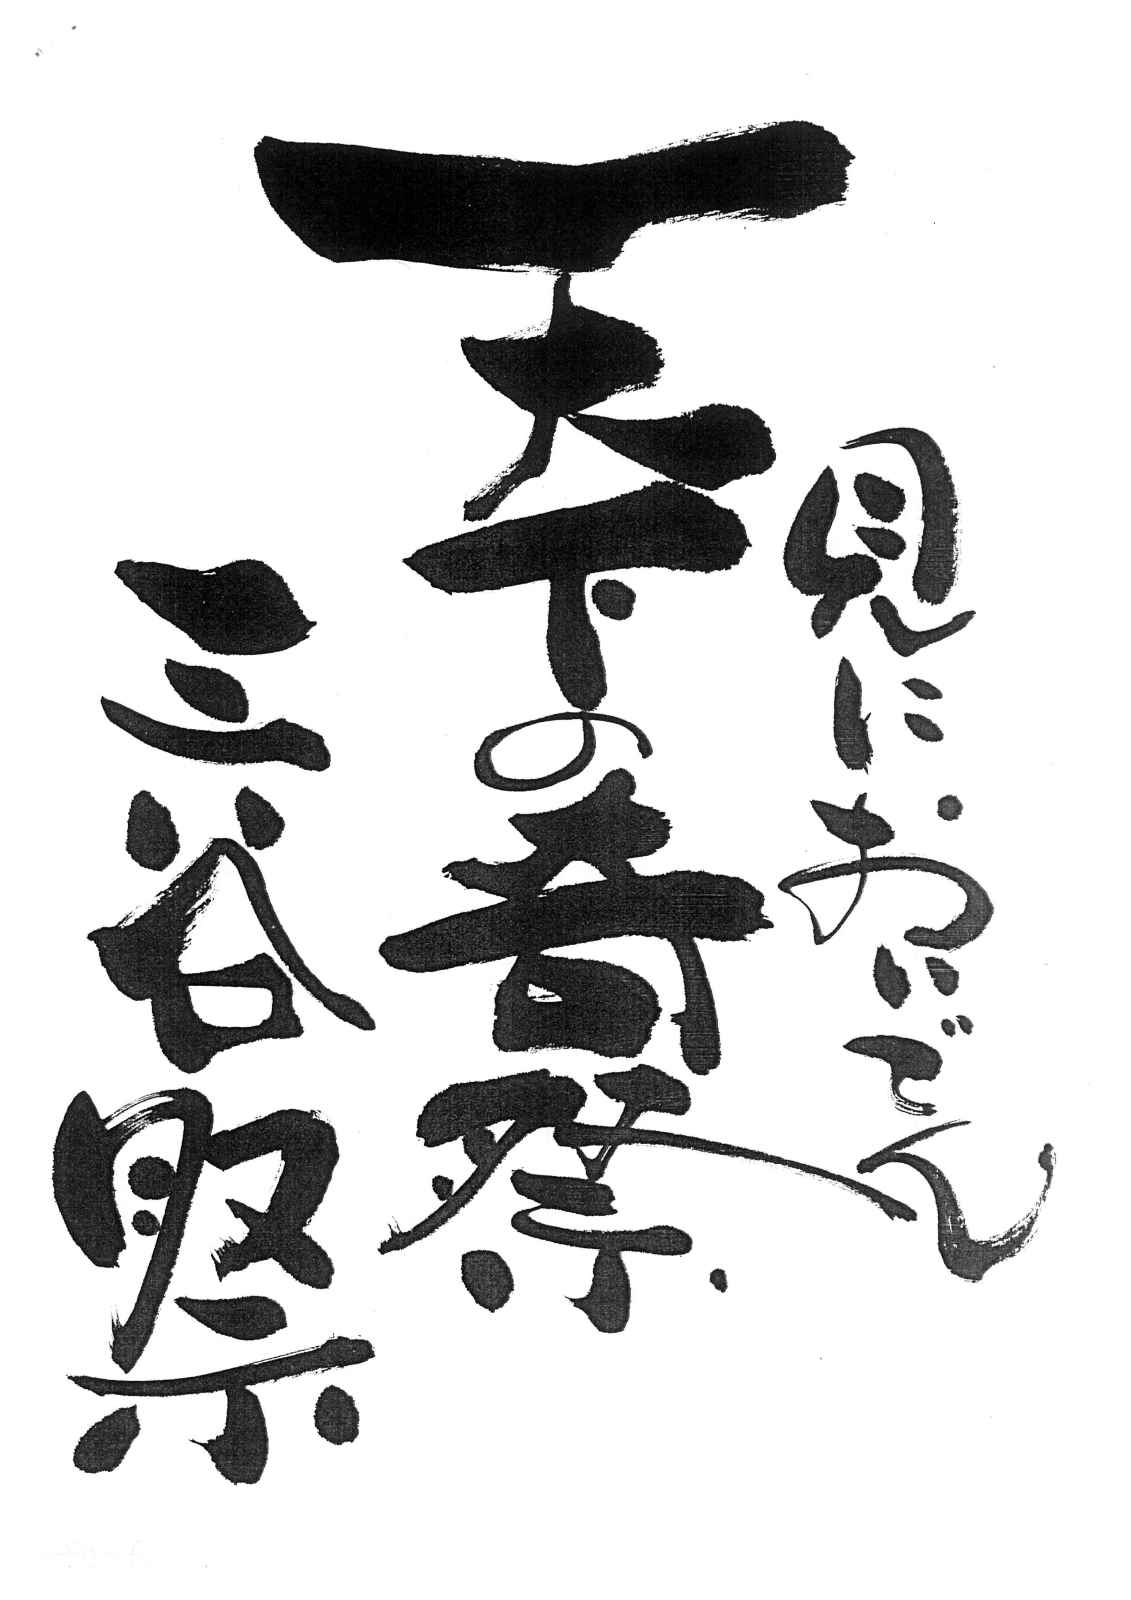 見においでん
天下の奇祭
三谷祭